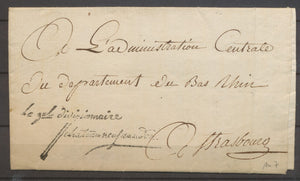 A L'administration Centrale
du département du Bas Rhin
le gal divisionnaire
A Strasbourg
an 7